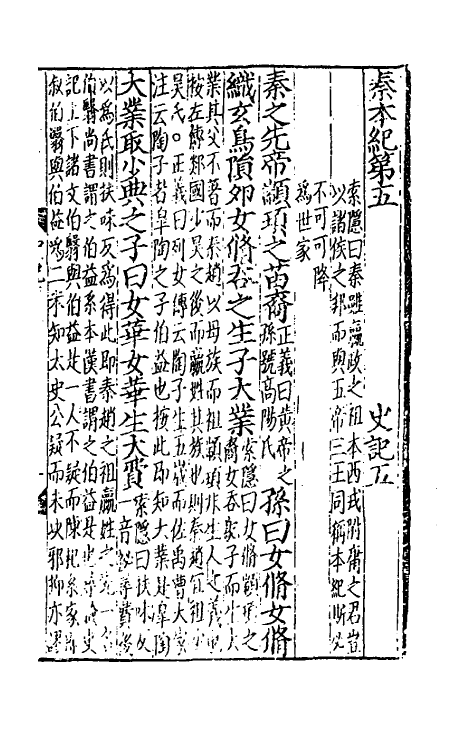 秦本紀第五　史記五
索隱曰秦雖嬴政之祖本西戎附庸之君豈
以諸侯之邦而與五帝三王同稱本紀斯必
不可可降
爲世家
秦之先帝顓頊之苗裔正義曰黃帝之孫號高陽氏孫曰女脩女脩
織玄鳥隕卵女脩吞之生子大業索隱曰女脩顓頊之裔女吞鳦子而生大
業其父不著而秦趙以母族而祖顓頊非生人之義也
按左傳郯國少昊之後而嬴姓其族也則秦趙宜祖少
昊氏○正義曰列女傳云陶子生五歲而佐禹曹大家
注云陶子者皋陶之子伯益也按此即知大業是皋陶
大業取少典之子曰女華女華生大費索隱曰扶味反
音祕尋費後
以爲氏則扶味反爲得此即秦趙之祖嬴姓之先一名
伯翳尚書謂之伯益系本漢書謂之伯益是也尋史
記上下諸文伯翳與伯益是一人不疑而陳杞系家
叙伯翳與伯益爲二未知太史公疑而未決邪抑亦謬